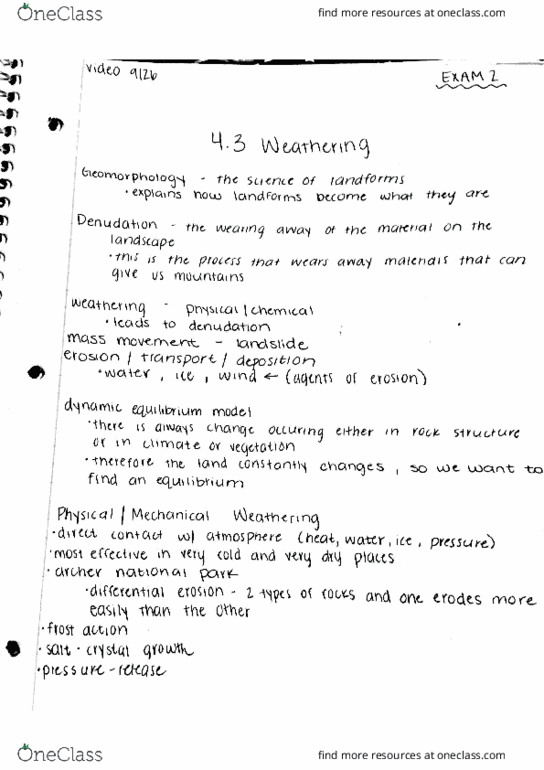 OneClass
find more resources at oneclass.com
video 9/26
EXAM 2
4.3 Weathering
Geomorphology - the science of landforms
• explains how landforms become what they are
Denudation - the wearing away of the material on the
landscape
• this is the process that wears away materials that can
give us mountains
weathering - physical / chemical
• leads to denudation
mass movement - landslide
erosion / transport / deposition
• water, ice, wind ← (agents of erosion)
dynamic equilibrium model
• there is always change occuring either in rock structure
or in climate or vegetation
• therefore the land constantly changes, so we want to
find an equilibrium
Physical / Mechanical Weathering
• direct contact w/ atmosphere (heat, water, ice, pressure)
• most effective in very cold and very dry places
• archer national park
• differential erosion - 2 types of rocks and one erodes more
easily than the other
• frost action
• salt - crystal growth
• pressure - release
OneClass
find more resources at oneclass.com